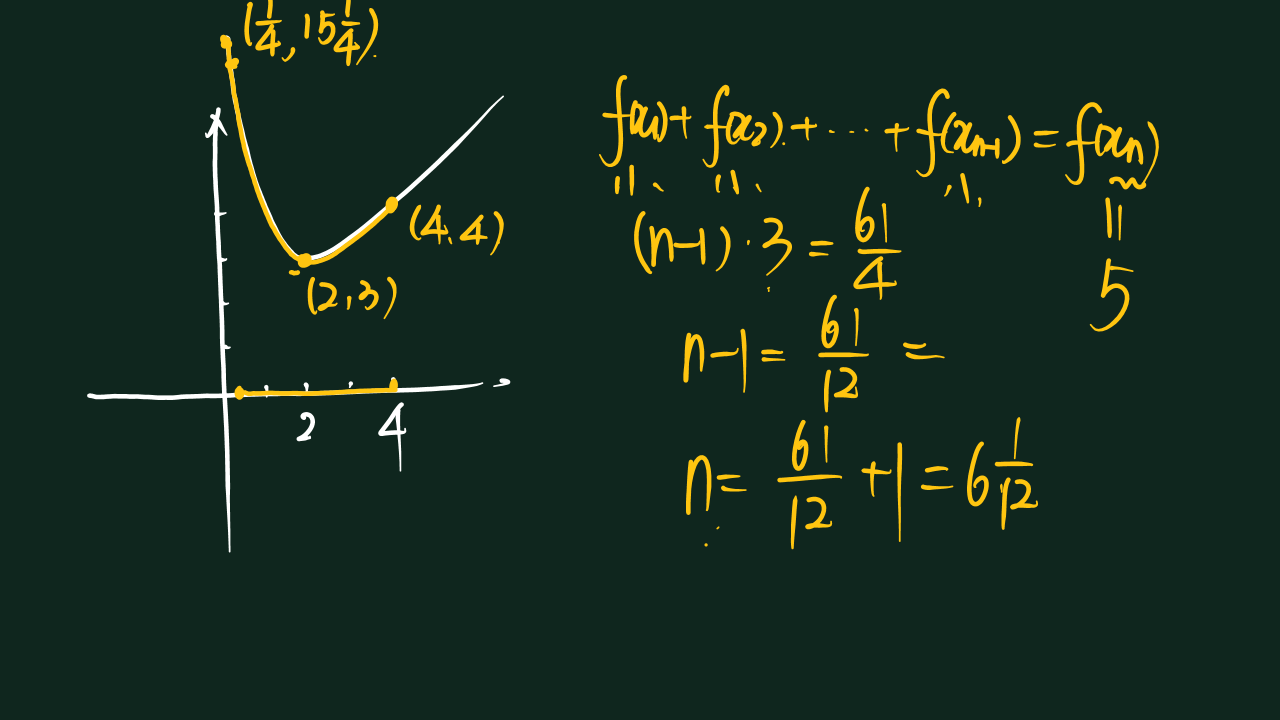 (1/4, 15 1/4)
(4, 4)
(2, 3)
2 4
f(x₁) + f(x₂) + ⋯ + f(xₙ₋₁) = f(xₙ)
(n-1)·3 = 61/4
5
n-1 = 61/12 =
n = 61/12 + 1 = 6 1/12